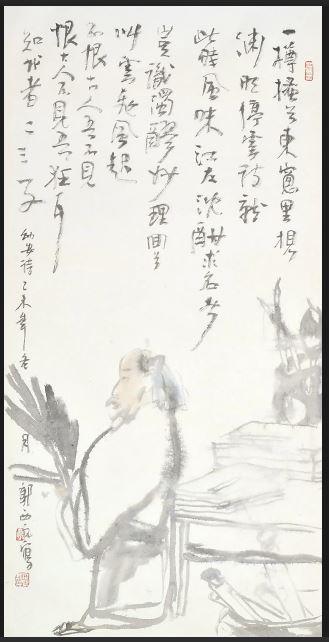 一樽搔首東窗里想
淵明停雲詩就
此時風味江左沈酣求名者
豈識濁醪妙理回首
叫雲飛風起
不恨古人吾不見
恨古人不見吾狂耳
知我者二三子
幼安詩乙未年冬月
郭西元寫